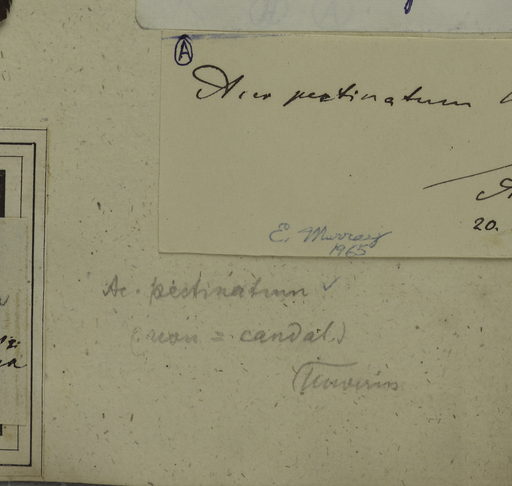 A
Acer pectinatum
20.
E. Murray
1965
Ac. pectinatum ✓
(non = caudat.)